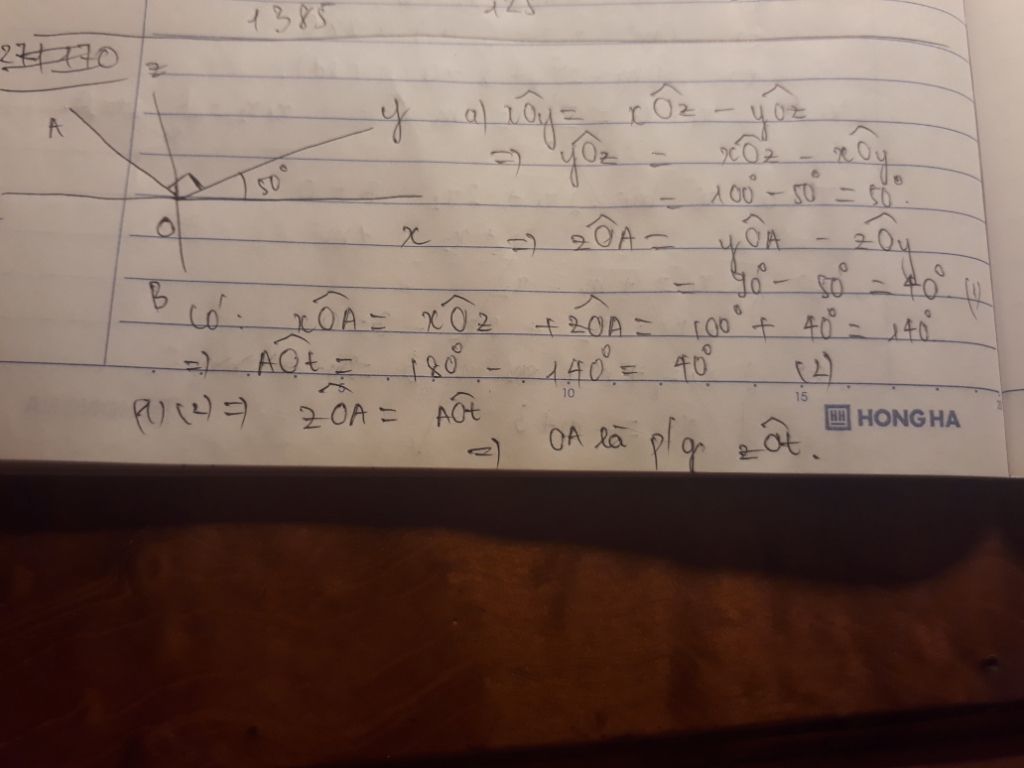 1385 125
z
A
y
50°
O
x
B
a) xÔy = xÔz - yÔz
=> yÔz = xÔz - xÔy
= 100° - 50° = 50°.
=> zÔA = yÔA - zÔy
= 90° - 50° = 40°. (1)
Có: xÔA = xÔz + zÔA = 100° + 40° = 140°
=> AÔt = 180° - 140° = 40° (2)
(1) (2) => zÔA = AÔt
=> OA là p/g zÔt.
10 15
HH HONG HA